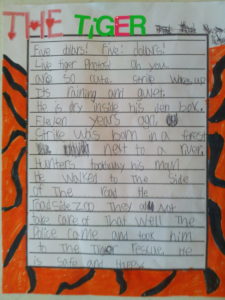 THE TIGER
Five dollars! Five dollars!
Live tiger Photos! Oh you
are so cute. Strike wakes up
Its raining and quiet.
He is dry inside his den box.
Eleven years ago
Strike was born in a forest
next to a river.
Hunters took his mom
He walked to the side
of The road He
Roadside zoo They did not
take care of That well The
Police came and took him
to The Tiger rescue. He
is safe and Happy.